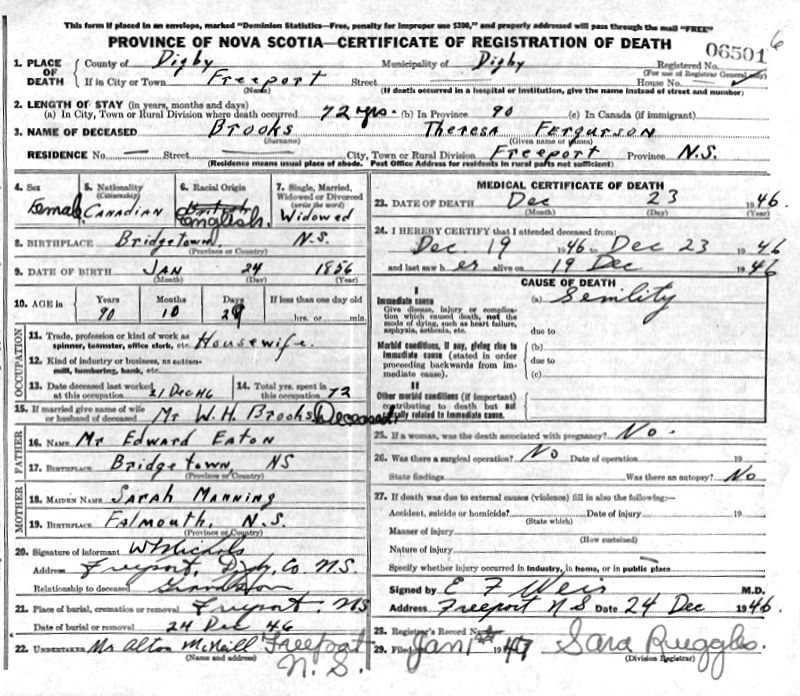 This form if placed in an envelope, marked "Dominion Statistics—Free, penalty for improper use $300," and properly addressed will pass through the mail "FREE"
PROVINCE OF NOVA SCOTIA—CERTIFICATE OF REGISTRATION OF DEATH
06501 6
1. PLACE OF DEATH County of Digby Municipality of Digby Registered No.
(For use of Registrar General only)
If in City or Town Freeport Street House No.
(Name) (If death occurred in a hospital or institution, give the name instead of street and number)
2. LENGTH OF STAY (in years, months and days)
(a) In City, Town or Rural Division where death occurred 72 yrs. (b) In Province 90 (c) In Canada (if immigrant)
3. NAME OF DECEASED Brooks Theresa Fergurson
(Surname) (Given name or names)
RESIDENCE No. — Street — City, Town or Rural Division Freeport Province N.S.
(Residence means usual place of abode. Post Office Address for residents in rural parts not sufficient)
4. Sex Female
5. Nationality (Citizenship) Canadian
6. Racial Origin British English.
7. Single, Married, Widowed or Divorced (write the word) Widowed
8. BIRTHPLACE Bridgetown, N.S.
(Province or Country)
9. DATE OF BIRTH Jan 24 1856
(Month) (Day) (Year)
10. AGE in Years 90 Months 10 Days 29 If less than one day old hrs. or min.
OCCUPATION
11. Trade, profession or kind of work as spinner, teamster, office clerk, etc. Housewife.
12. Kind of industry or business, as cotton-mill, lumbering, bank, etc.
13. Date deceased last worked at this occupation 21 Dec 46
14. Total yrs. spent in this occupation 72
15. If married give name of wife or husband of deceased Mr W. H. Brooks Deceased
FATHER
16. NAME Mr Edward Eaton
17. BIRTHPLACE Bridgetown, NS
(Province or Country)
MOTHER
18. MAIDEN NAME Sarah Manning
19. BIRTHPLACE Falmouth, N.S.
(Province or Country)
20. Signature of informant W Nichols
Address Freeport, Digby Co. N.S.
Relationship to deceased Grandson
21. Place of burial, cremation or removal Freeport, NS
Date of burial or removal 24 Dec 46
22. UNDERTAKER Mr Alton McNeill Freeport N.S.
(Name and address)
MEDICAL CERTIFICATE OF DEATH
23. DATE OF DEATH Dec 23 1946.
(Month) (Day) (Year)
24. I HEREBY CERTIFY that I attended deceased from:
Dec 19 1946 to Dec 23 1946
and last saw h er alive on 19 Dec 1946
CAUSE OF DEATH
I
Immediate cause (a) Senility
Give disease, injury or complication which caused death, not the mode of dying, such as heart failure, asphyxia, asthenia, etc.
due to
Morbid conditions, if any, giving rise to immediate cause (stated in order proceeding backwards from immediate cause).
(b)
due to
(c)
II
Other morbid conditions (if important) contributing to death but not causally related to immediate cause.
25. If a woman, was the death associated with pregnancy? No.
26. Was there a surgical operation? No Date of operation 19
State findings Was there an autopsy? No
27. If death was due to external causes (violence) fill in also the following:—
Accident, suicide or homicide? Date of injury 19
(State which)
Manner of injury
(How sustained)
Nature of injury
Specify whether injury occurred in industry, in home, or in public place
Signed by E F Weir M.D.
Address Freeport N S Date 24 Dec 1946.
28. Registrar's Record Number
29. Filed Jan 1st 1947 Sara Ruggles.
(Division Registrar)